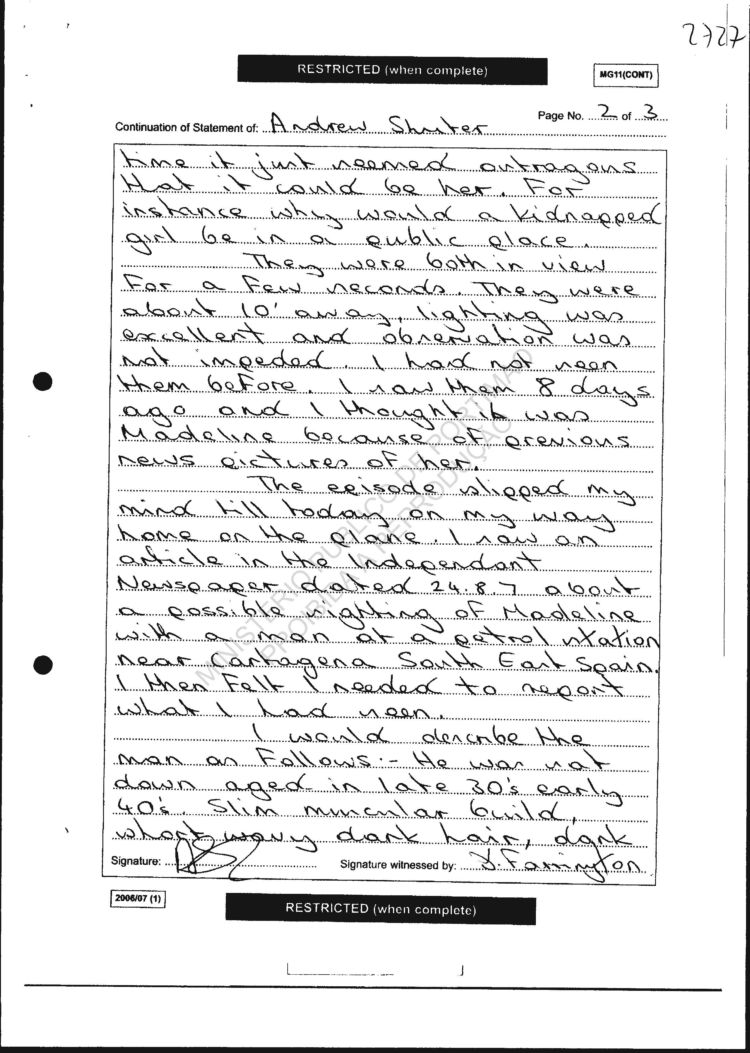 2727
RESTRICTED (when complete)
MG11(CONT)
Page No. 2 of 3
Continuation of Statement of: Andrew Shuter
time it just seemed outragous
that it could be her. For
instance why would a kidnapped
girl be in a public place.
They were both in view
For a Few seconds. They were
about 10' away, lighting was
excellent and observation was
not impeded. I had not seen
them before. I saw them 8 days
ago and I thought it was
Madeline because of previous
news pictures of her.
The episode slipped my
mind till today on my way
home on the plane. I saw an
article in the Independant
Newspaper dated 24.8.7 about
a possible sighting of Madeline
with a man at a petrol station
near Cartagena South East Spain.
I then Felt I needed to report
what I had seen.
I would describe the
man as Follows:- He was sat
down aged in late 30's early
40's. Slim muscular build,
short wavy dark hair, dark
Signature:
Signature witnessed by: D. Farrington
2006/07 (1)
RESTRICTED (when complete)
MINISTÉRIO PUBLICO DE PORTIMÃO
PROIBIDA A REPRODUÇÃO